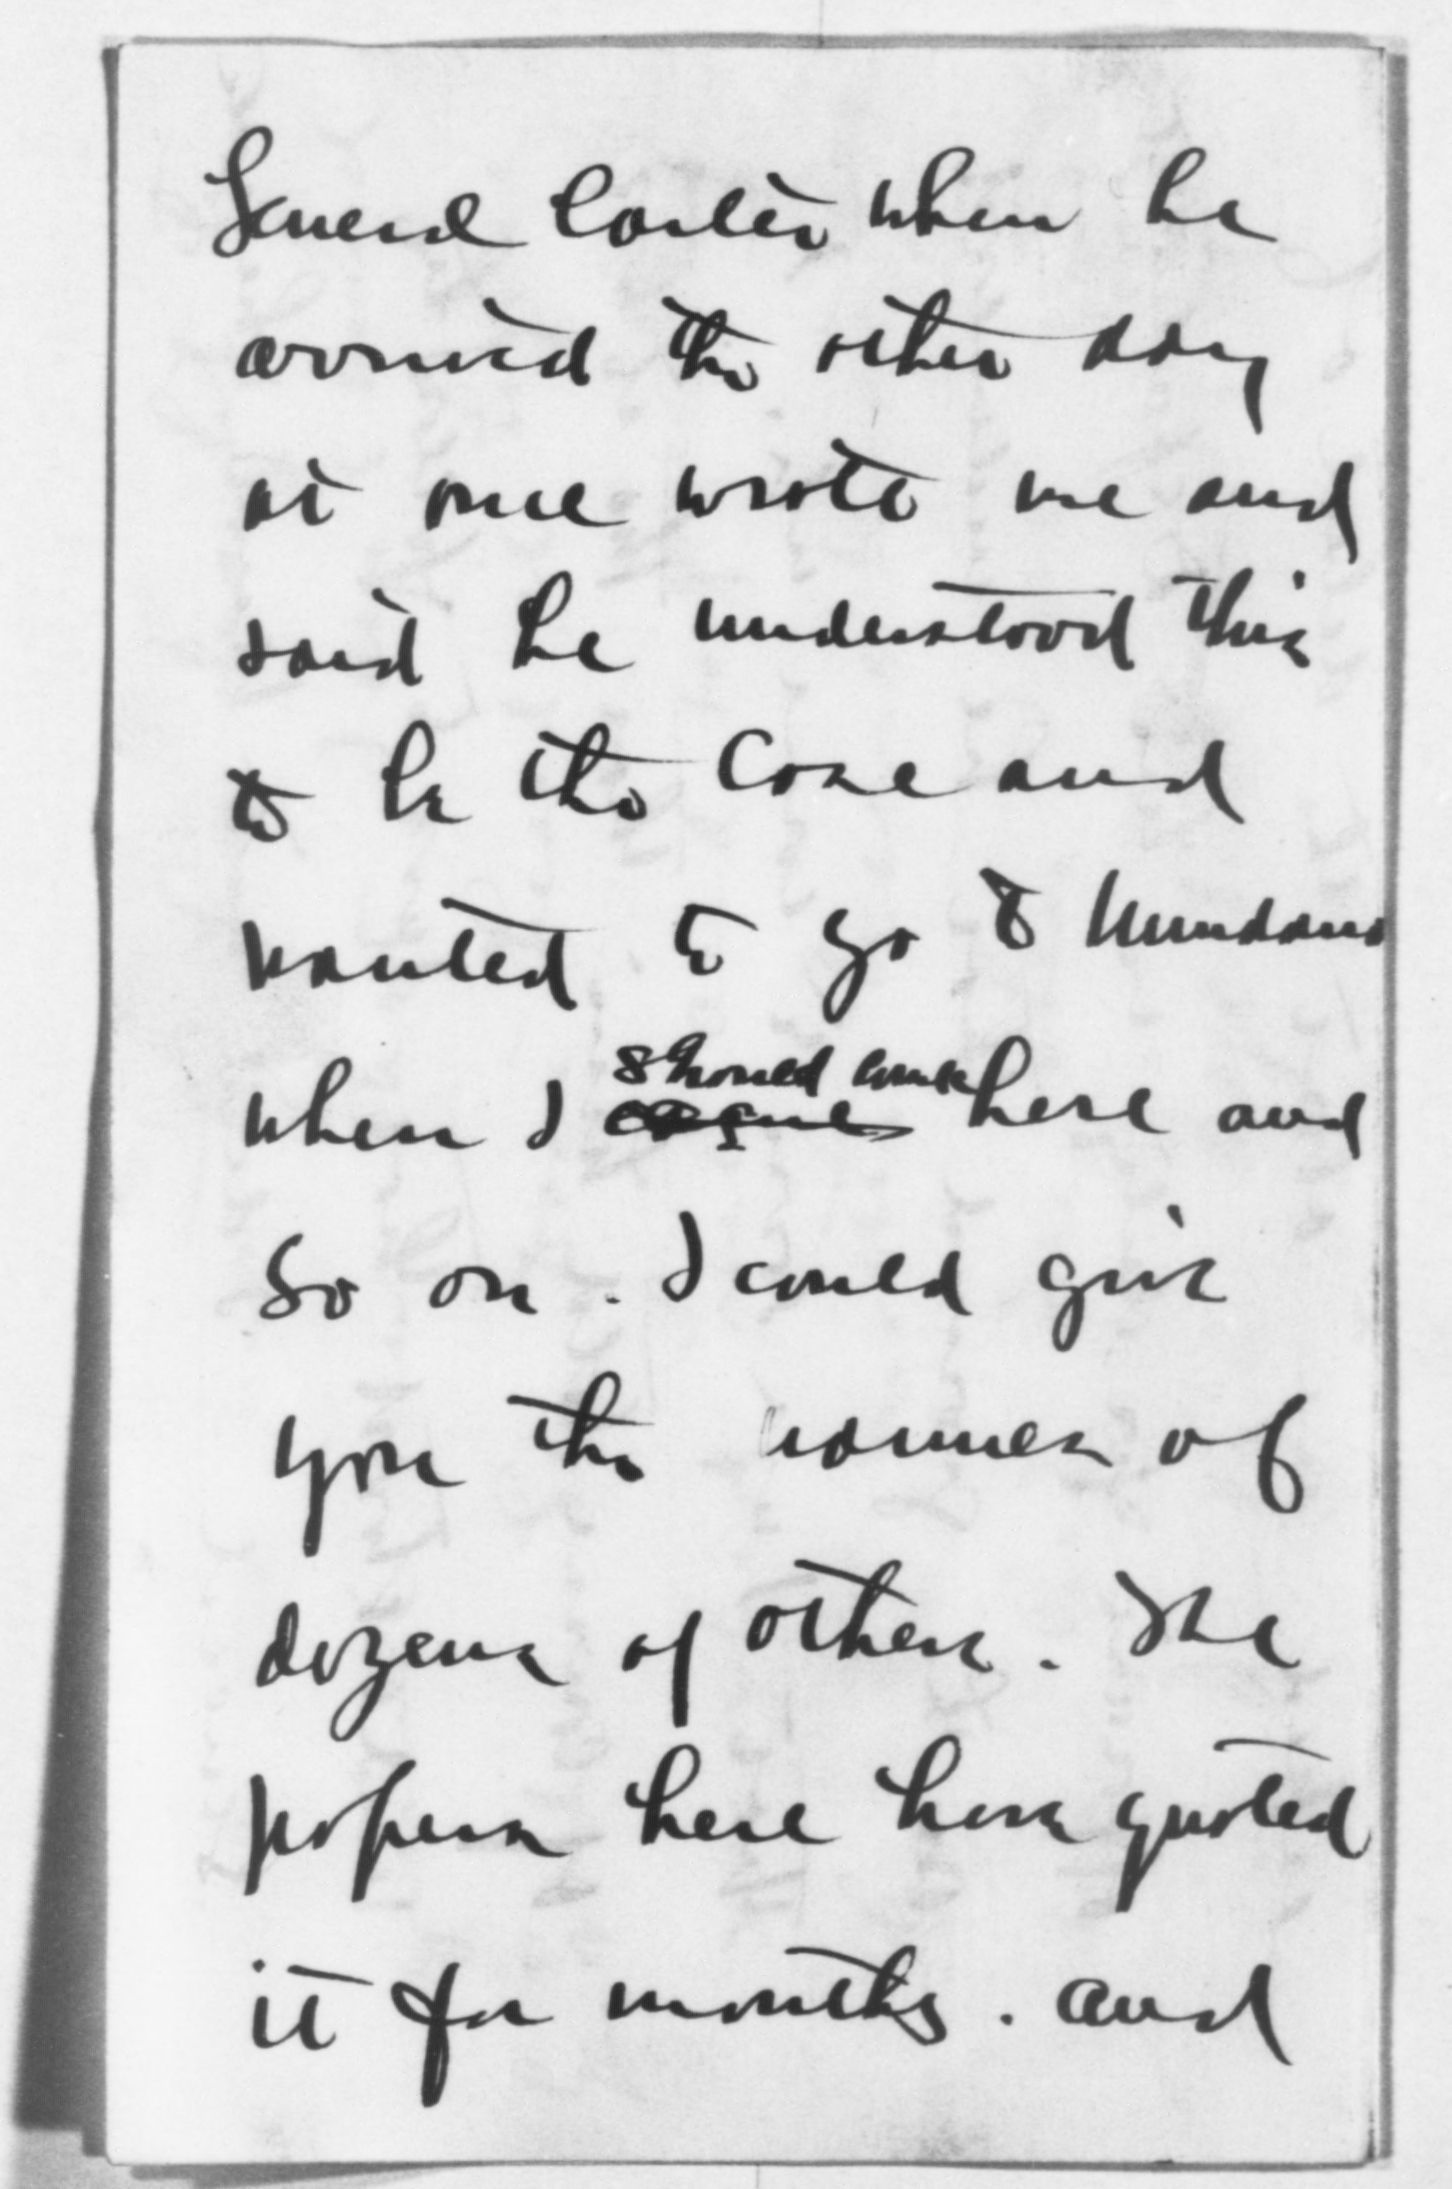 General Carter when he
arrived the other day
at once wrote me and
said he understood this
to be the case and
wanted to go to Mindanao
when I should come here and
so on. I could give
you the names of
dozens of others. The
papers here have quoted
it for months. and